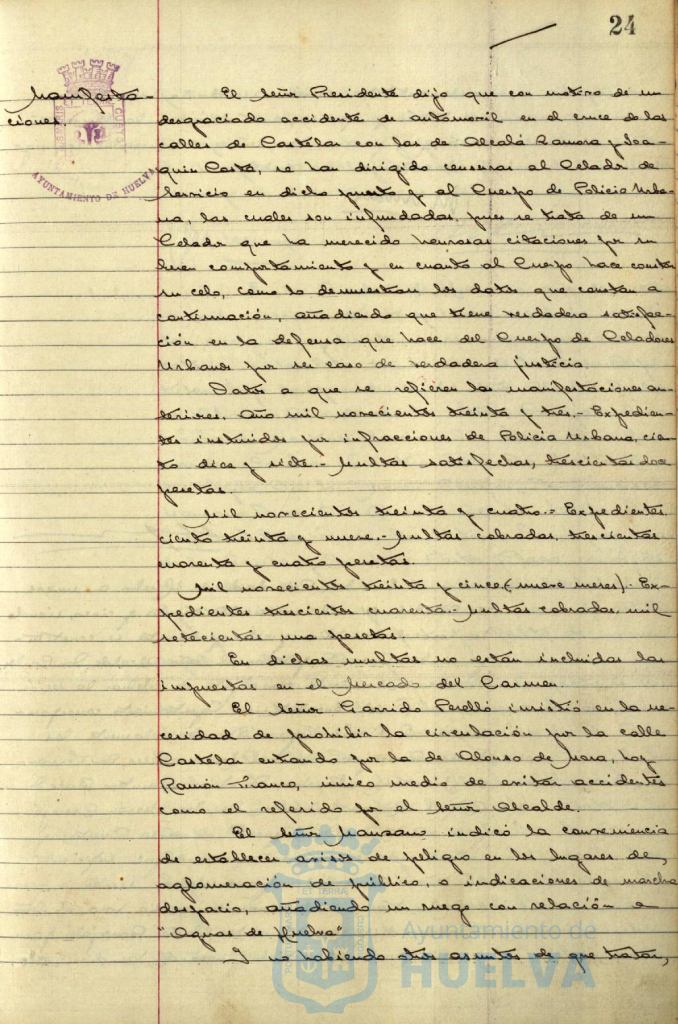 24
Manifesta-
ciones.
AYUNTAMIENTO DE HUELVA
El Señor Presidente dijo que con motivo de un
desgraciado accidente de automovil en el cruce de las
calles de Castelar con las de Alcalá Zamora y Joa-
quin Costa, se han dirigido censuras al Celador de
servicio en dicho puesto y al Cuerpo de Policia Urba-
na, las cuales son infundadas, pues se trata de un
Celador que ha merecido honrosas citaciones por su
buen comportamiento y en cuanto al Cuerpo hace constar
su celo, como lo demuestran los datos que constan a
continuación, añadiendo que tiene verdadera satisfac-
ción en la defensa que hace del Cuerpo de Celadores
Urbanos por ser caso de verdadera justicia.
Datos a que se refieren las manifestaciones an-
teriores. Año mil novecientos treinta y tres.- Expedien-
tes instruidos por infracciones de Policia Urbana, cien-
to diez y siete.- Multas satisfechas, trescientas doce
pesetas.
Mil novecientos treinta y cuatro.- Expedientes
ciento treinta y nueve.- Multas cobradas, trescientas
cuarenta y cuatro pesetas.
Mil novecientos treinta y cinco (nueve meses).- Ex-
pedientes trescientos cuarenta.- Multas cobradas, mil
setecientas una pesetas.
En dichas multas no están incluidas las
impuestas en el Mercado del Carmen.
El Señor Garrido Perelló insistió en la ne-
cesidad de prohibir la circulación por la calle
Castelar entrando por la de Alonso de Mora, hoy
Ramón Franco, único medio de evitar accidentes
como el referido por el Señor Alcalde.
El Señor Manzano indicó la conveniencia
de establecer avisos de peligro en los lugares de
aglomeración de público, o indicaciones de marcha
despacio, añadiendo un ruego con relación a
"Aguas de Huelva"
Y no habiendo otros asuntos de que tratar,
Ayuntamiento de
HUELVA